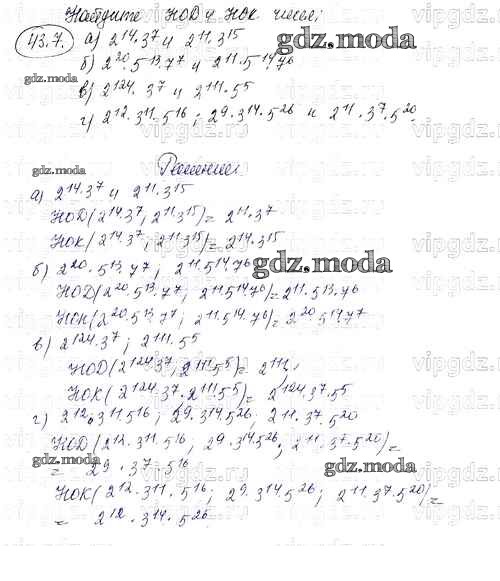 Найдите НОД и НОК чисел:
43.7. а) 2^14·3^7 и 2^11·3^15
gdz.moda
б) 2^20·5^13·7^7 и 2^11·5^14·7^6
в) 2^124·3^7 и 2^111·5^5
г) 2^12·3^11·5^16; 2^9·3^14·5^26 и 2^11·3^7·5^20.
gdz.moda
Решение
а) 2^14·3^7 и 2^11·3^15
НОД(2^14·3^7; 2^11·3^15)=2^11·3^7
НОК(2^14·3^7; 2^11·3^15)=2^14·3^15
б) 2^20·5^13·7^7; 2^11·5^14·7^6
gdz.moda
НОД(2^20·5^13·7^7; 2^11·5^14·7^6)=2^11·5^13·7^6
НОК(2^20·5^13·7^7; 2^11·5^14·7^6)=2^20·5^14·7^7
в) 2^124·3^7; 2^111·5^5
НОД(2^124·3^7; 2^111·5^5)=2^111;
НОК(2^124·3^7·2^111·5^5)=2^124·3^7·5^5
г) 2^12·3^11·5^16; 2^9·3^14·5^26; 2^11·3^7·5^20
НОД(2^12·3^11·5^16; 2^9·3^14·5^26; 2^11·3^7·5^20)=
gdz.moda
gdz.moda
= 2^9·3^7·5^16
НОК(2^12·3^11·5^16; 2^9·3^14·5^26; 2^11·3^7·5^20)=
= 2^12·3^14·5^26
vipgdz.ru